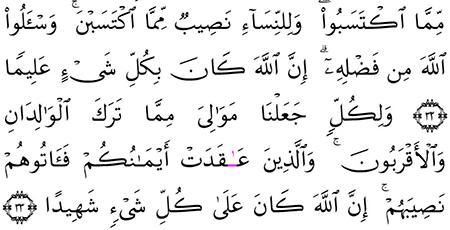 مِّمَّا ٱكْتَسَبُوا۟ ۖ وَلِلنِّسَآءِ نَصِيبٌ مِّمَّا ٱكْتَسَبْنَ ۚ وَسْـَٔلُوا۟
ٱللَّهَ مِن فَضْلِهِۦٓ ۗ إِنَّ ٱللَّهَ كَانَ بِكُلِّ شَىْءٍ عَلِيمًا
٣٢ وَلِكُلٍّ جَعَلْنَا مَوَٰلِىَ مِمَّا تَرَكَ ٱلْوَٰلِدَانِ
وَٱلْأَقْرَبُونَ ۚ وَٱلَّذِينَ عَـٰقَدَتْ أَيْمَـٰنُكُمْ فَـَٔاتُوهُمْ
نَصِيبَهُمْ ۚ إِنَّ ٱللَّهَ كَانَ عَلَىٰ كُلِّ شَىْءٍ شَهِيدًا ٣٣